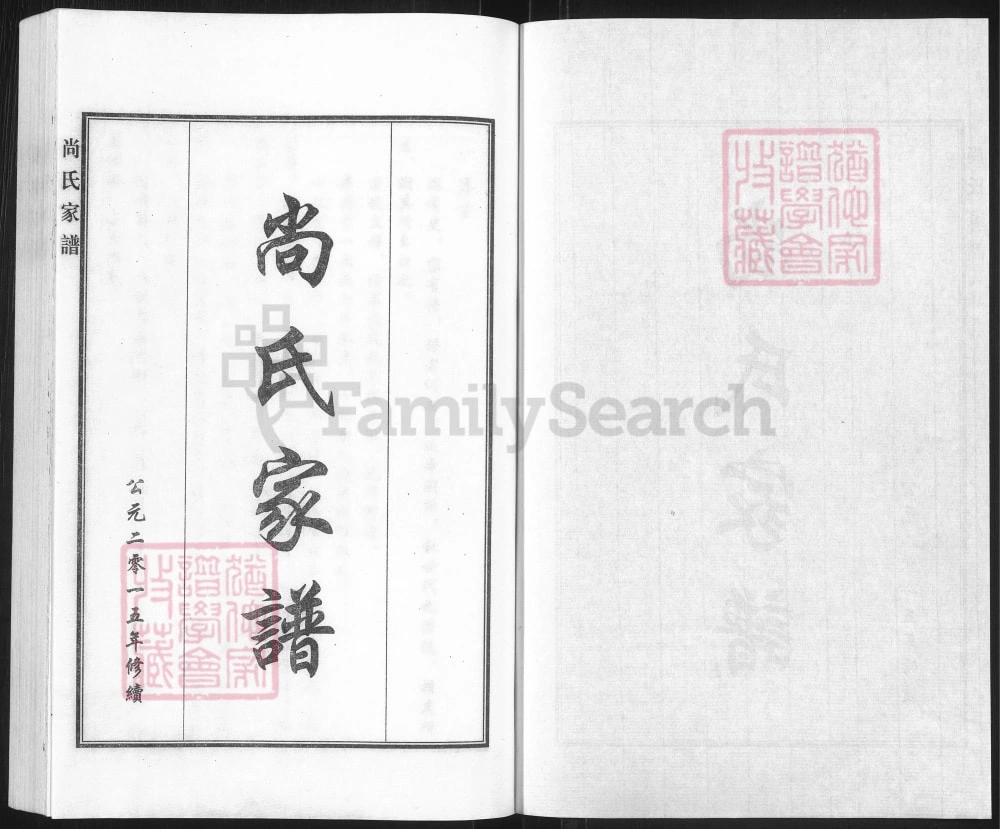 尚氏家譜
公元二零一五年修續
尚氏家譜
FamilySearch
譜學會
收藏
譜學會
收藏